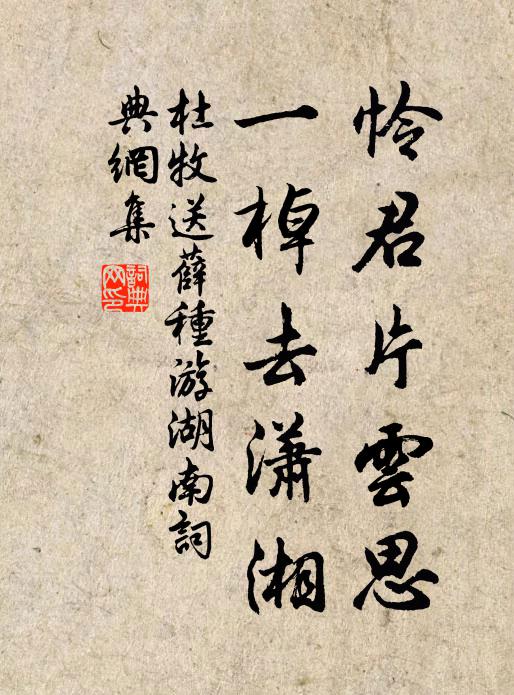 怜君片雲思
一棹去瀟湘
杜牧送薛種游湖南詞
典網集
詞典網印